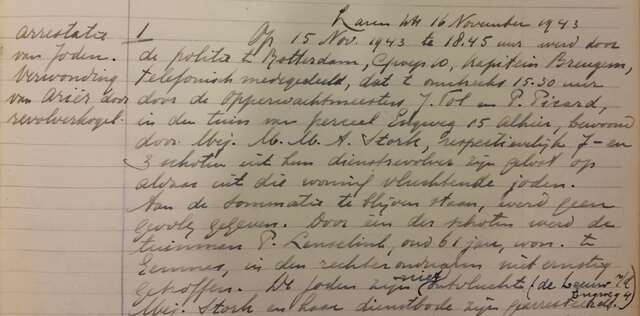 Laren NH 16 November 1943
arrestatie van Joden. Verwonding van Ariër door revolverkogel.
1
Op 15 Nov. 1943 te 18.45 uur werd door
de politie te Rotterdam, Groep 10, Kapitein Breugem,
telefonisch medegedeeld, dat te omstreeks 15.30 uur
door de Opperwachtmeesters J. Tol en P. Picard,
in den tuin van perceel Engweg 15 Alhier, bewoond
door Mej. M. M. A. Stork, respectievelijk 7- en
3 schoten uit hun dienstrevolver zijn gelost op
aldaar uit die woning vluchtende joden.
Aan de sommatie te blijven staan, werd geen
gevolg gegeven. Door één der schoten werd de
tuinman P. Lenselink, oud 61 jaar, won. te
Eemnes, in den rechter niet ernstig
getroffen. De joden zijn niet ontvlucht (de Leeuw
Engweg 4)
Mej. Stork en haar dienstbode zijn gearresteerd.